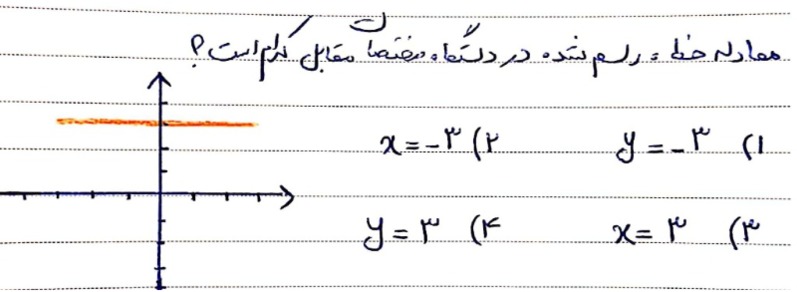 معادله خط رسم شده در دستگاه مختصات مقابل کدام است؟
۱) y = -۳ ۲) x = -۳
۳) x = ۳ ۴) y = ۳